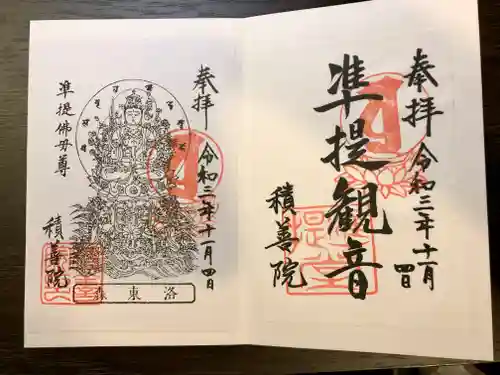 奉拝
令和三年十一月四日
準提観音
積善院
奉拝
令和三年十一月四日
準提佛母尊
積善院
洛東森